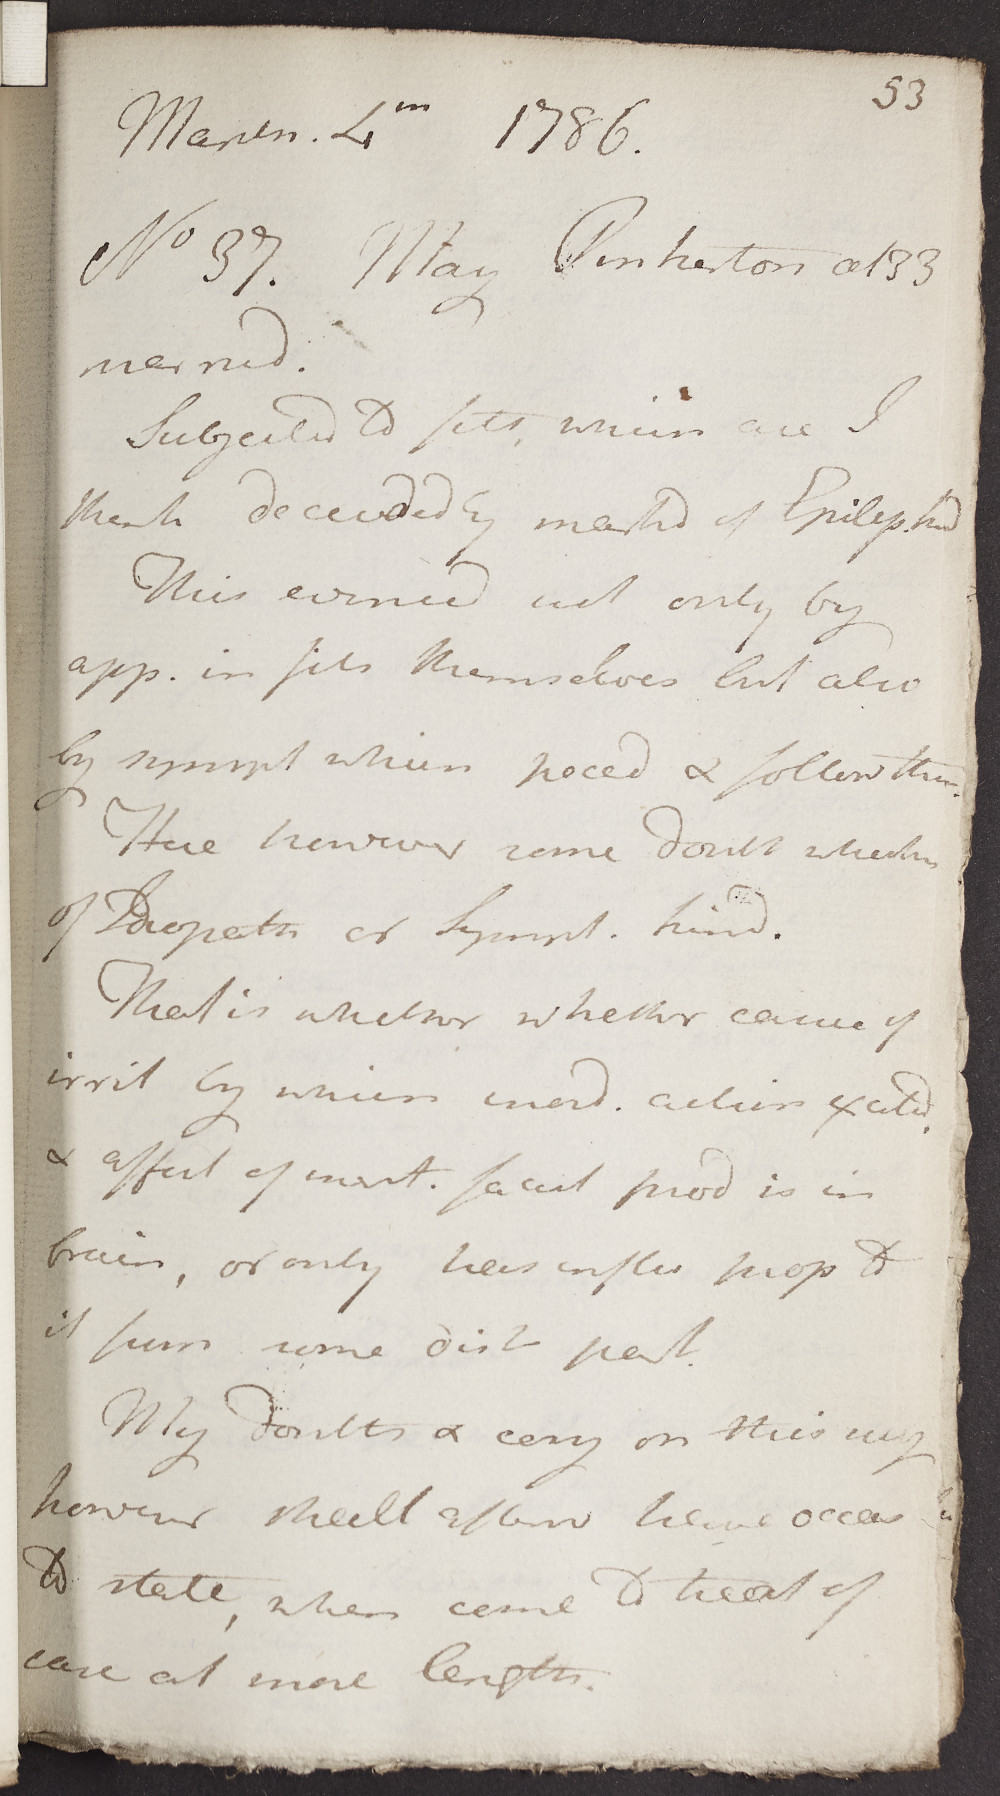 53
March. 4th 1786.
No 37. May Pinkerton aet 33
married.
Subjected to fits, which are I
think decidedly marked of Epilep. kind
This evinced not only by
app. in fits themselves but also
by sympt which preced & follow them.
Here however some doubt whether
of Idiopath or Sympt. kind.
That is whether whether cause of
irrit by which inord. action excited,
& affect of prod is in
brain, or only has influ prop to
it from some dist part.
My doubts & on this
however shall afterw have occas
to state, when come to treat of
case at more length.